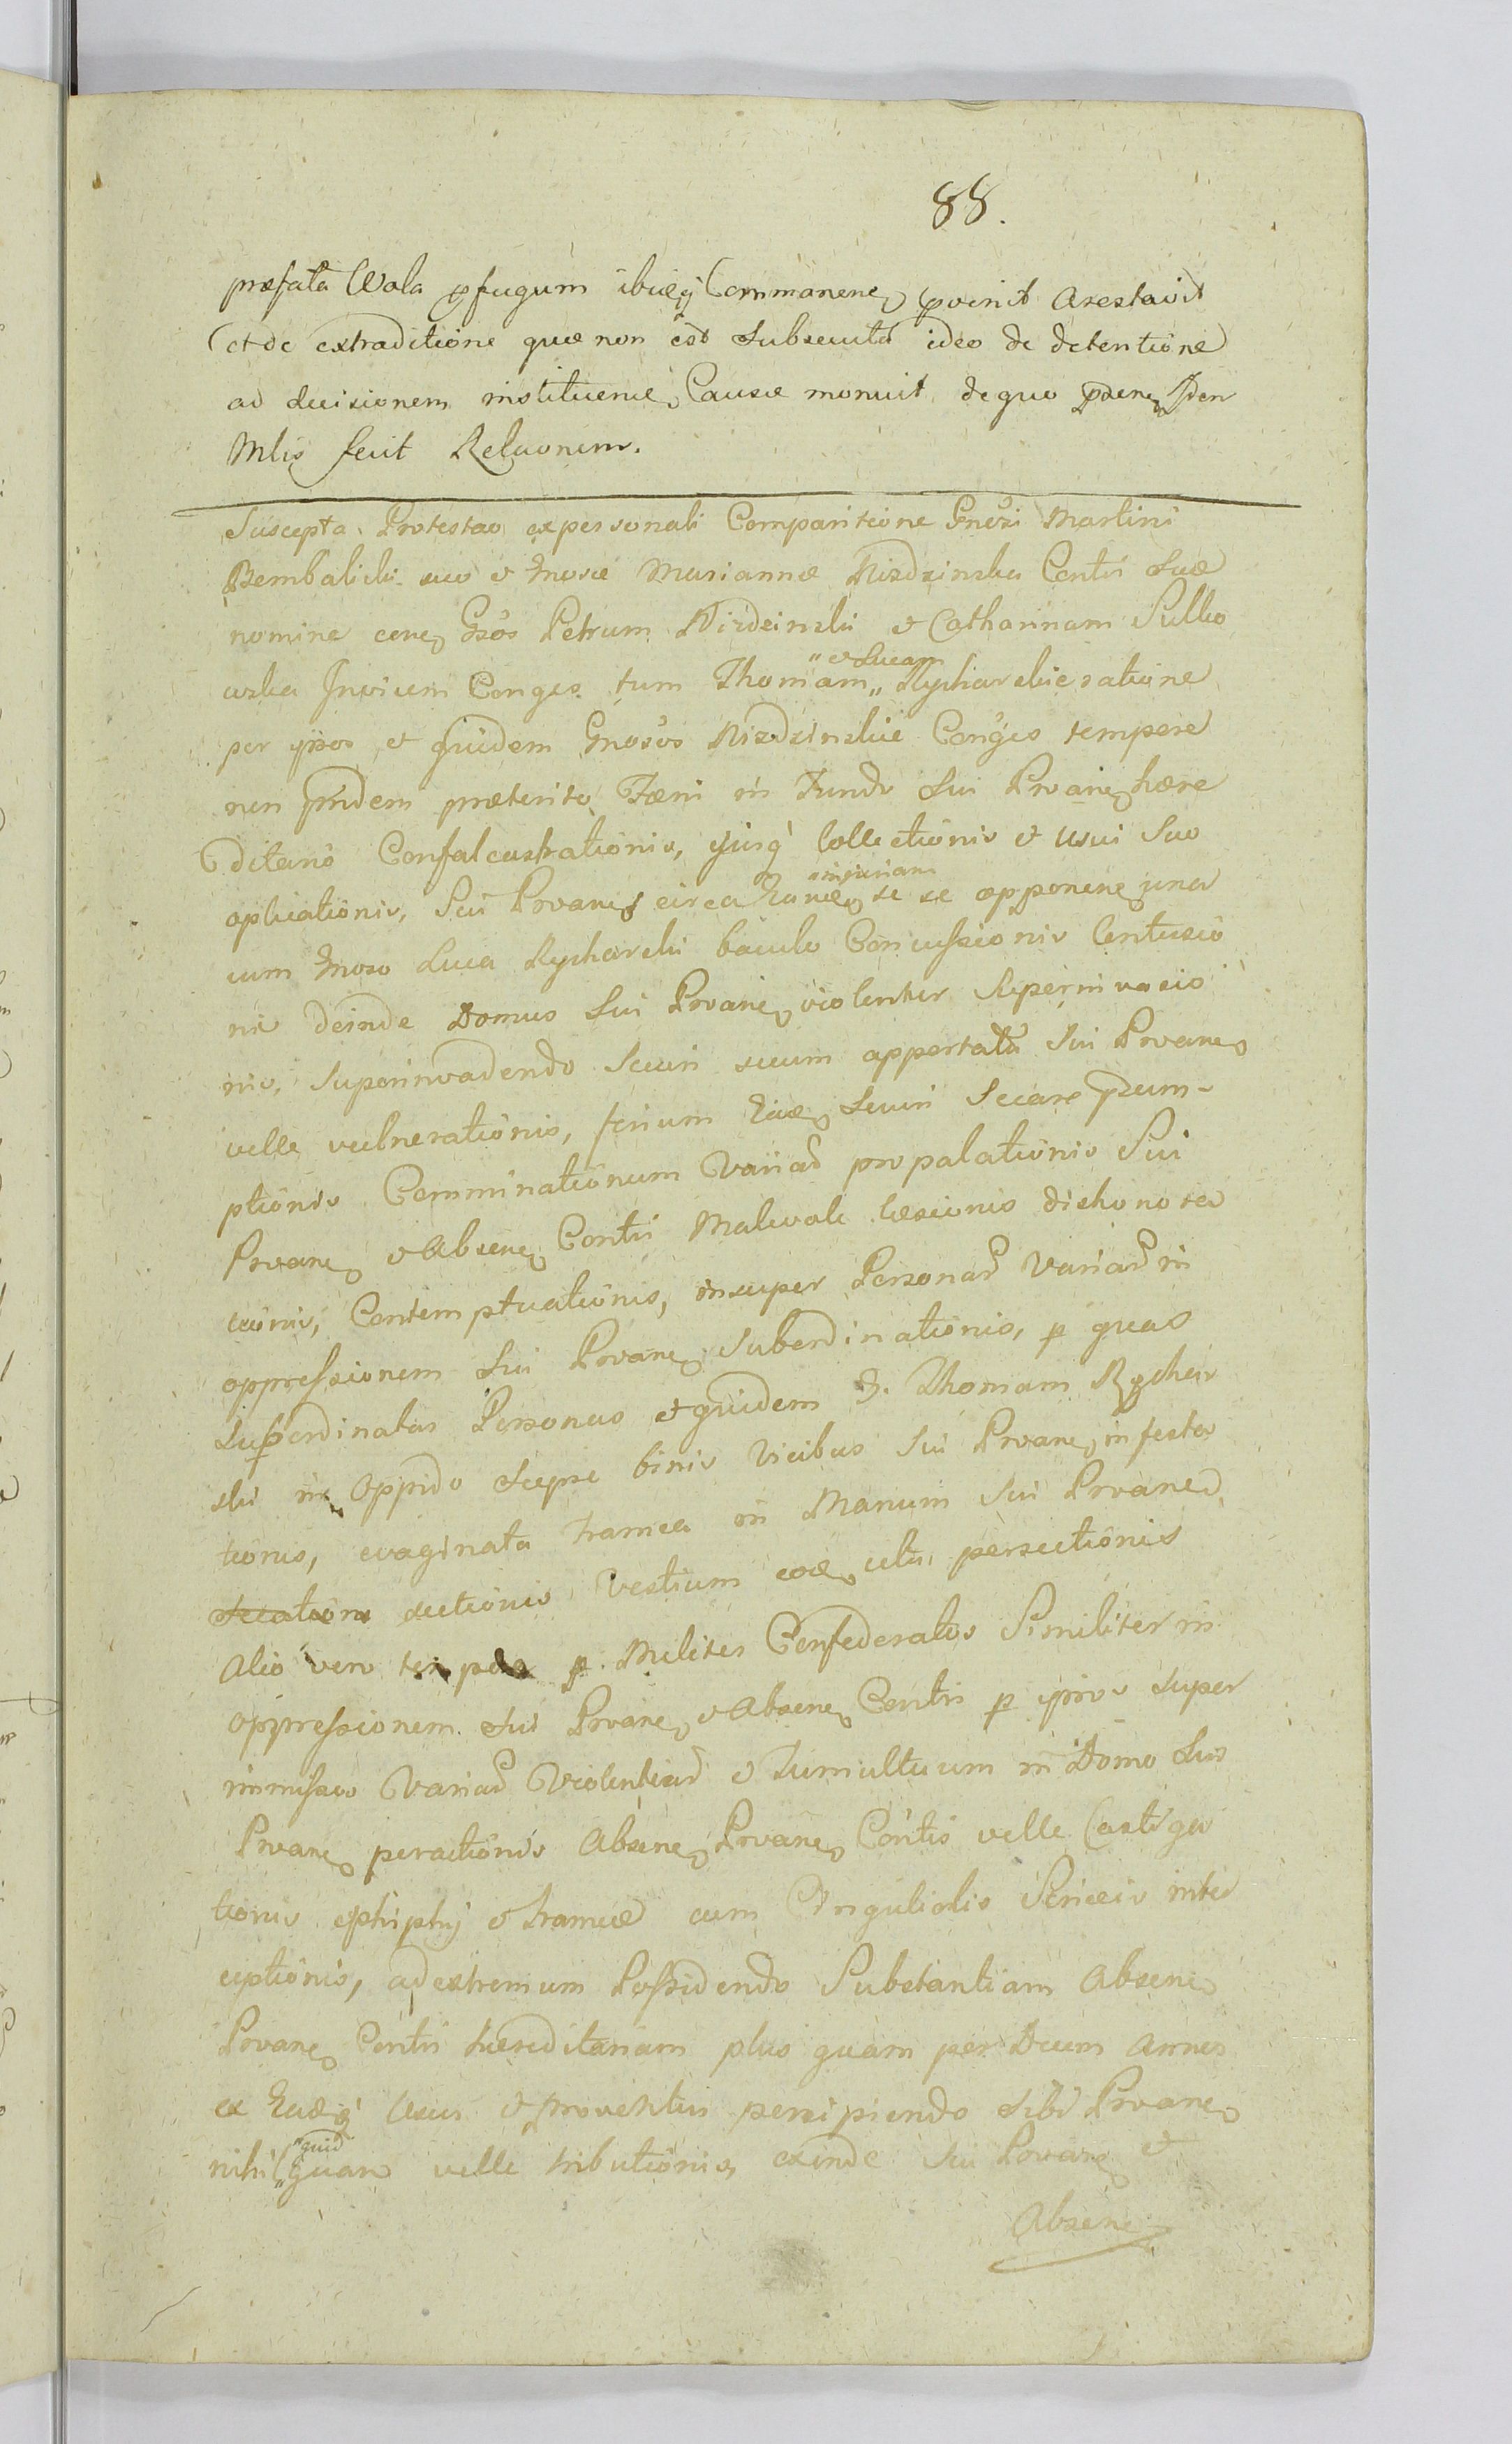 88.
præfata Wola pfugum ibidq Commanene, pvenit Arestavit
et de extraditione quæ non est subsecuta ideo de detentione
ad decisionem instituenæ, Causæ monuit de quo pdene, Iden
Mlis fecit Relaonem.
Suscepta Protestao ex personali Comparitione Gnosi Martini
Bembalicki suo et Gnosæ Mariannæ Nizdzinska Contis suæ
nomine cone, Gsos Petrum Nizdzinski et Catharinam Sulko
wska Invicem Conges tum Thomam „et Lucam„ Rycharskie ratione
per ipsos et quidem Gnosos Nizdzinskie Conges tempore
non pridem præterito, Fæni in Fundo sui Prvane, hære
ditario Confalcastrationis, ejusq Collectionis et usui suo
aplicationis, Sui Prvane, circa injuriam se se opponene, una
cum Gnoso Luca Rycharski baculo Concussionis Contusio
nis deinde Domus Sui Prvane, violenter Superinvasio
nis, Superinvadendo Securi secum apportata Sui Prvane,
velle vulnerationis, securi Secare præsum-
ptionis Comminationum variar propalationis Sui
Prvane, et Absene, Contis Malevole læsionis dishonora
tionis, Contemptuationis, insuper Personar Variar in
oppressionem Sui Prvane, Subordinationis, p quas
Supordinatas Personas et quidem G. Thomam Rychar
ski in Oppido Sæpse binis vicibus Sui Prvane, infesta
tionis, evaginata framea in Manum Sui Prvane,
sectionis Vestium persectionis
Alio vero p Milites Confederatos Similiter in
oppressionem Sui Prvane, et Absene, Contis p ipsos super
immissos Variar Violentiar et Tumultuum in Domo Sui
Prvane, peractionis Absene, Prvane, Contis velle Castiga
tionis ephiphij et frameæ cum Cingulialis Sericeis inter
ceptionis, ad extremum Possidendo Substantiam Absene,
Prvane, Contis hæreditariam plus quam per Decem Annos
ex usus et proventus percipiendo sibi Prvane,
nihil „quid„ quam velle tributionis, exinde Sui Prvane, et
Absene,